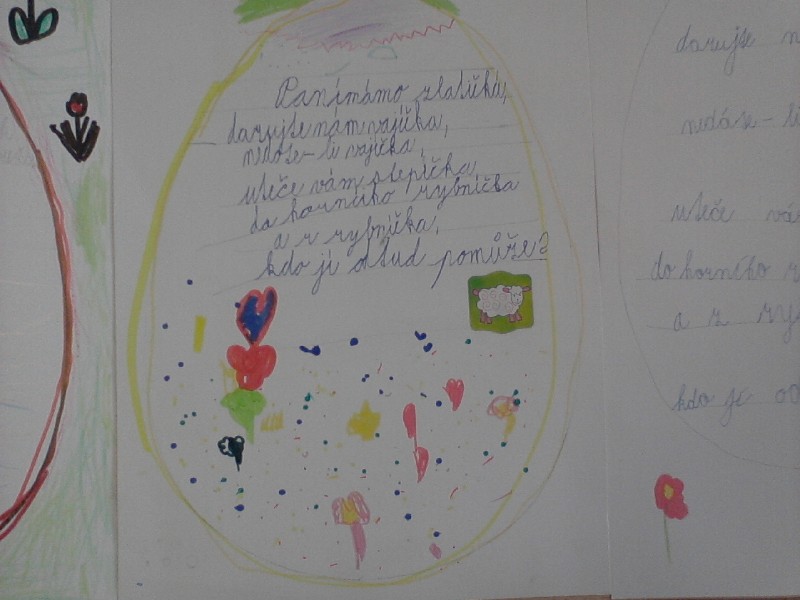 Panímámo zlatičká,
darujte nám vajíčka,
nedáte-li vajíčka,
uteče vám slepička
do horního rybníčka
a z rybníčka,
kdo jí odtud pomůže?
darujte n
nedáte-li
uteče vá
do horního r
a z ry
kdo jí od